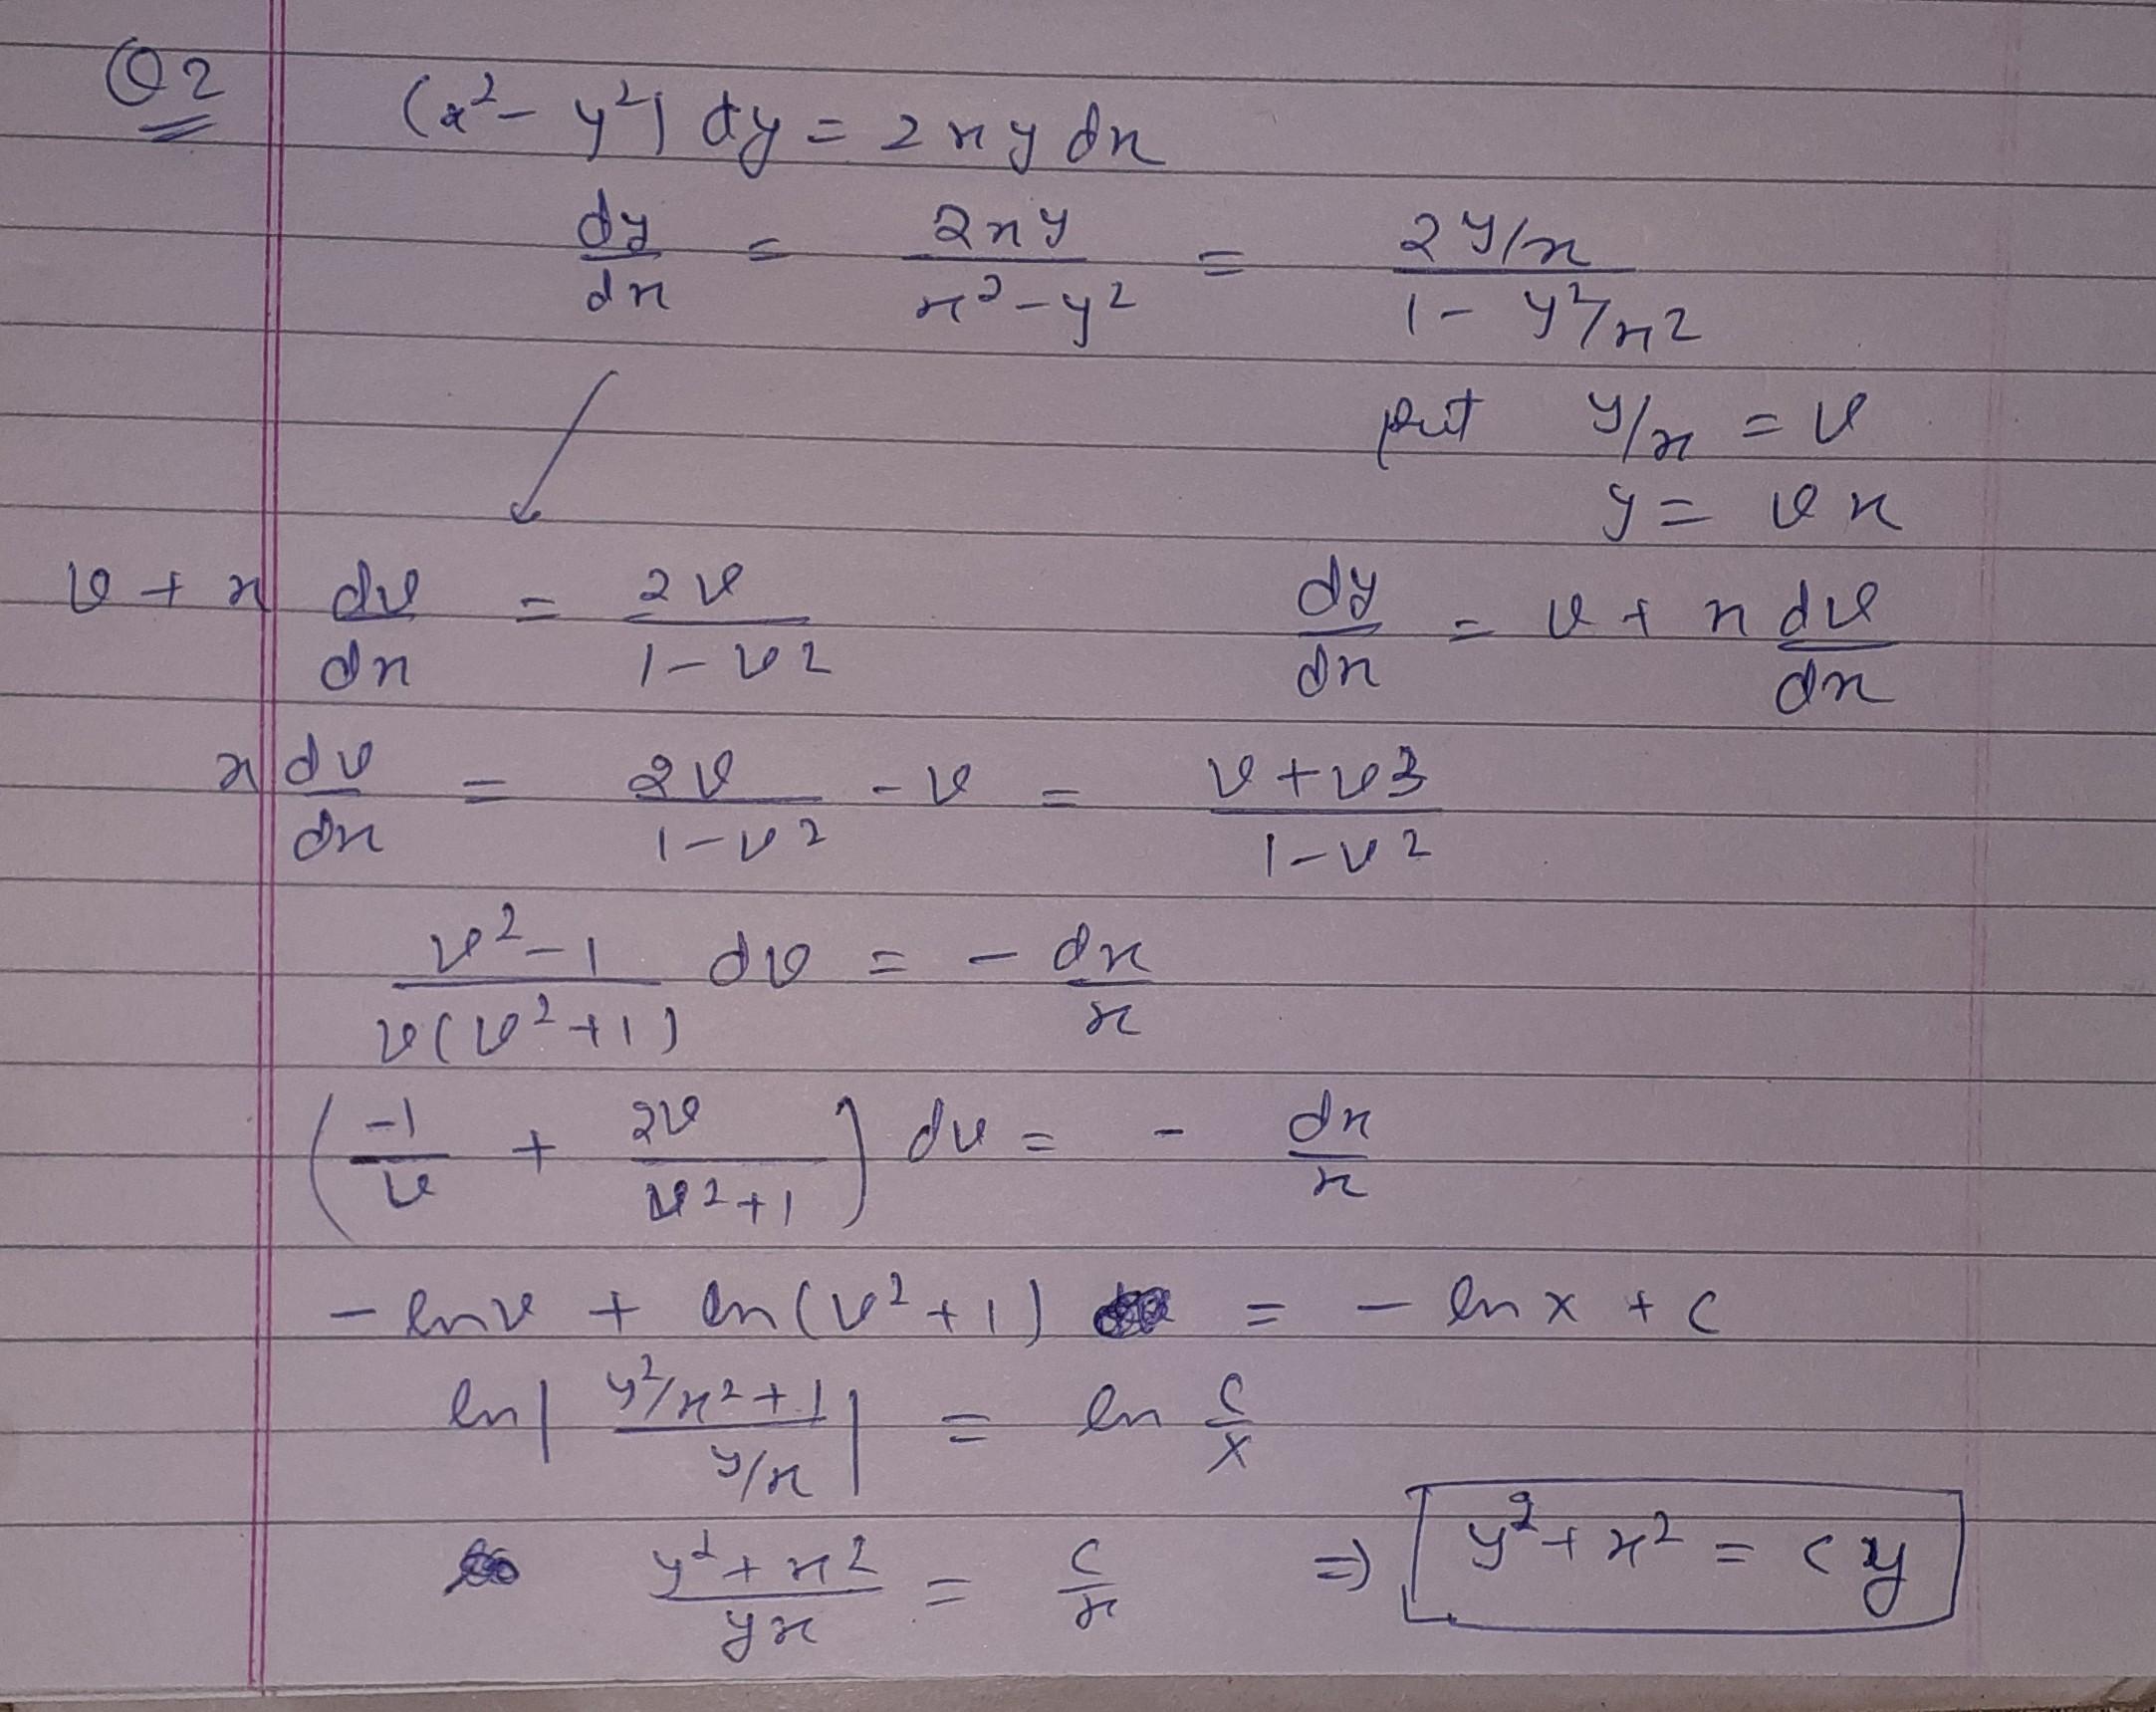 Q2 (x² - y²) dy = 2xy dx
dy/dx = 2xy/(x² - y²) = (2 y/x)/(1 - y²/x²)
put y/x = v
y = vx
v + x dv/dx = 2v/(1 - v²) dy/dx = v + x dv/dx
x dv/dx = 2v/(1 - v²) - v = (v + v³)/(1 - v²)
(v² - 1)/(v(v² + 1)) dv = - dx/x
(-1/v + 2v/(v² + 1)) dv = - dx/x
- ln v + ln(v² + 1) = - ln x + c
ln |(y²/x² + 1)/(y/x)| = ln c/x
(y² + x²)/(yx) = c/x ⇒ y² + x² = cy